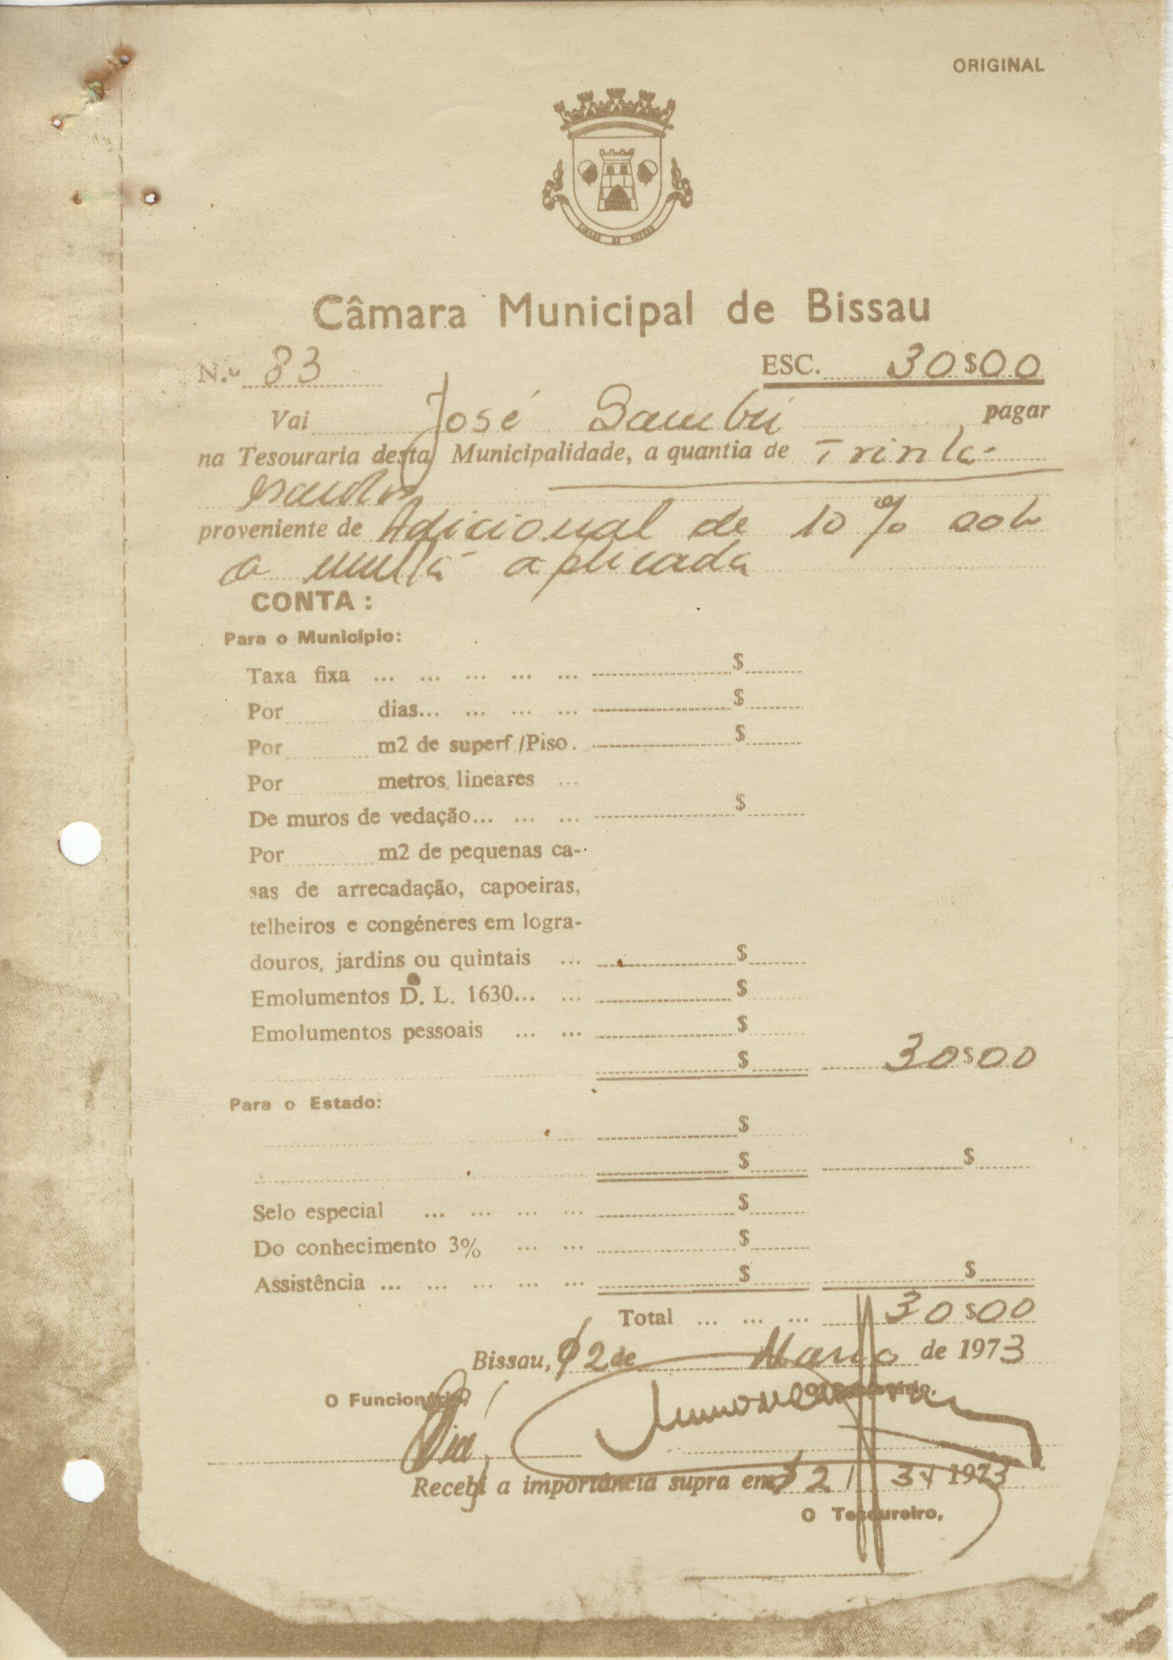 ORIGINAL
Câmara Municipal de Bissau
N.º 83 ESC. 30$00
Vai José Sambú pagar
na Tesouraria desta Municipalidade, a quantia de Trinta
escudos
proveniente de Adicional de 10% sob
a multa aplicada
CONTA:
Para o Município:
Taxa fixa ... ... ... ... ... $
Por dias... ... ... ... $
Por m2 de superf/Piso. $
Por metros lineares ...
De muros de vedação... ... ... $
Por m2 de pequenas ca-
sas de arrecadação, capoeiras,
telheiros e congéneres em logra-
douros, jardins ou quintais ... $
Emolumentos D. L. 1630... ... $
Emolumentos pessoais ... ... $
$ 30$00
Para o Estado:
$
$ $
Selo especial ... ... ... ... $
Do conhecimento 3% ... ... $
Assistência ... ... ... ... ... $ $
Total ... ... ... 30$00
Bissau, 12 de Março de 1973
O Funcionário,
Recebi a importância supra em 12/3/1973
O Tesoureiro,